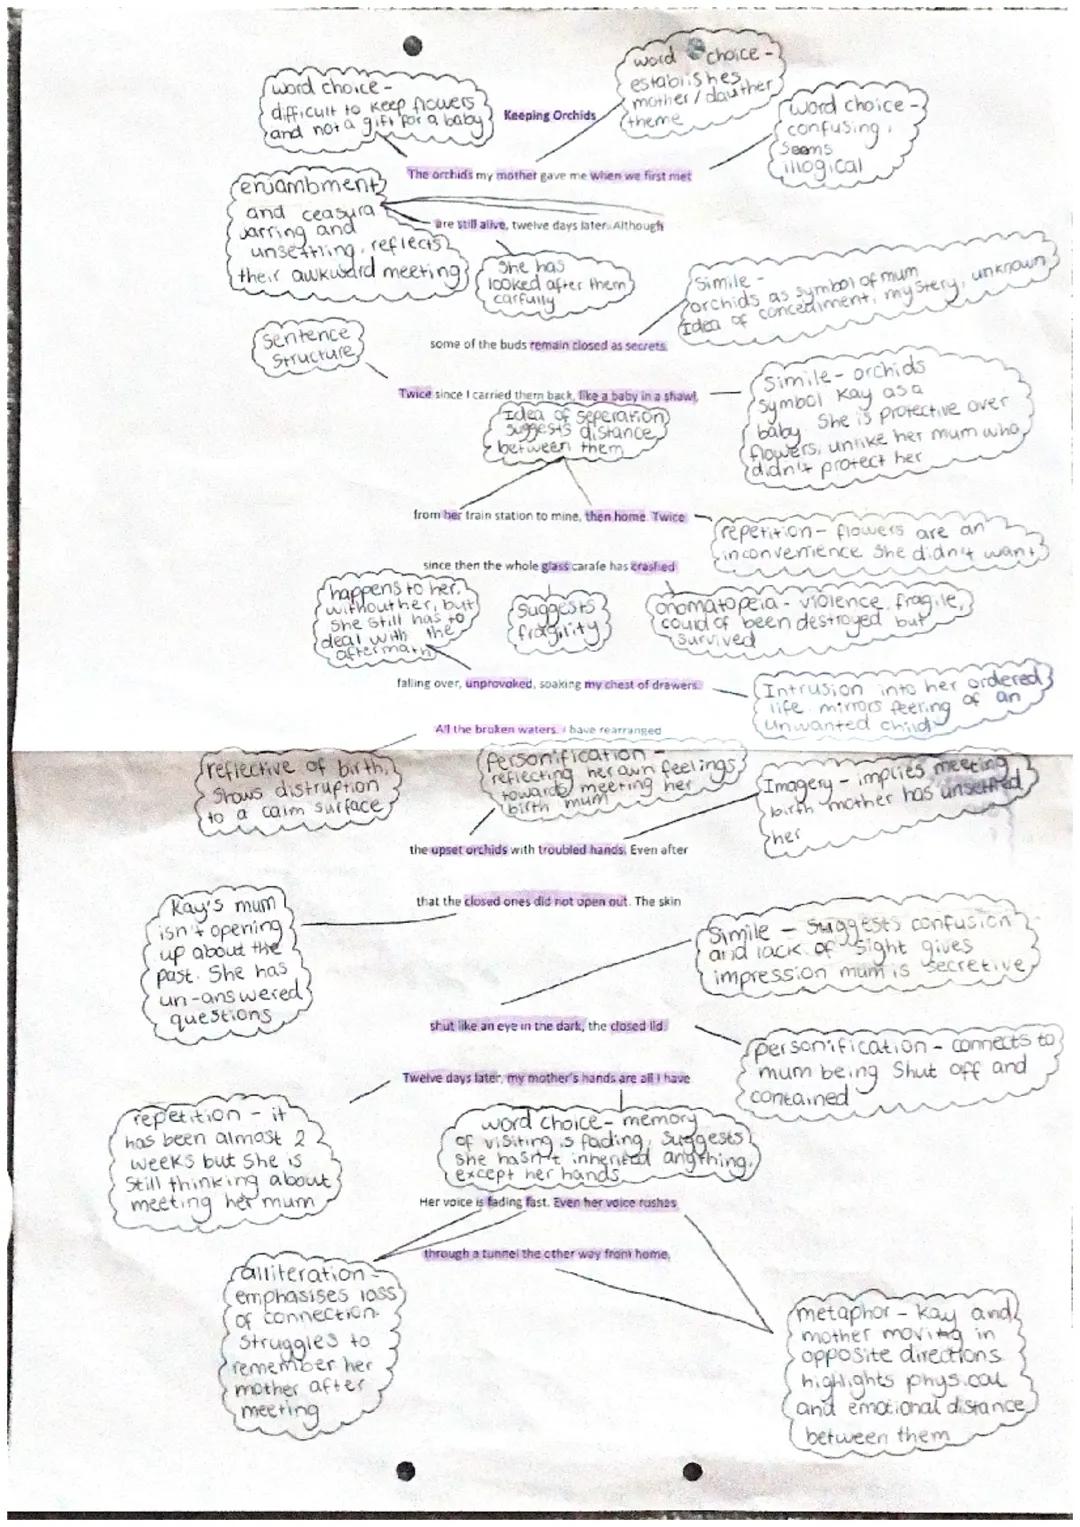 word choice -
difficult to keep flowers
and not a gift for a baby
Keeping Orchids
word choice -
establishes
mother/dauther
theme
word choice -
confusing,
seems
illogical
The orchids my mother gave me when we first met
enjambment
and ceasura
jarring and
unsettling, reflects
their awkward meeting
are still alive, twelve days later. Although
She has
looked after them
carfully
Simile -
orchids as symbol of mum
Idea of concealment, mystery, unknown
some of the buds remain closed as secrets.
Sentence
Structure
Twice since I carried them back, like a baby in a shawl,
Simile - orchids
symbol Kay as a
baby. She is protective over
flowers, unlike her mum who
didn't protect her
Idea of seperation
suggests distance
between them
from her train station to mine, then home. Twice
repetition - flowers are an
inconvenience she didn't want
since then the whole glass carafe has crashed
happens to her,
without her, but
she still has to
deal with the
aftermath
suggests
fragility
onomatopeia - violence, fragile,
could of been destroyed but
survived
falling over, unprovoked, soaking my chest of drawers.
Intrusion into her ordered
life mirrors feering of an
unwanted child
All the broken waters. I have rearranged
reflective of birth,
shows distruption
to a calm surface
Personification -
reflecting her own feelings
towards meeting her
birth mum
Imagery - implies meeting
birth mother has unsettled
her
the upset orchids with troubled hands. Even after
that the closed ones did not open out. The skin
Kay's mum
isn't opening
up about the
past. She has
un-answered
questions
Simile - suggests confusion
and lack of sight gives
impression mum is secretive
shut like an eye in the dark, the closed lid.
personification - connects to
mum being shut off and
contained
Twelve days later, my mother's hands are all I have
repetition - it
has been almost 2
weeks but she is
still thinking about
meeting her mum
word choice - memory
of visiting is fading, suggests
she hasn't inherited anything,
except her hands
Her voice is fading fast. Even her voice rushes
through a tunnel the other way from home.
alliteration -
emphasises loss
of connection.
Struggles to
remember her
mother after
meeting
metaphor - Kay and
mother moving in
opposite directions
highlights physical
and emotional distance
between them